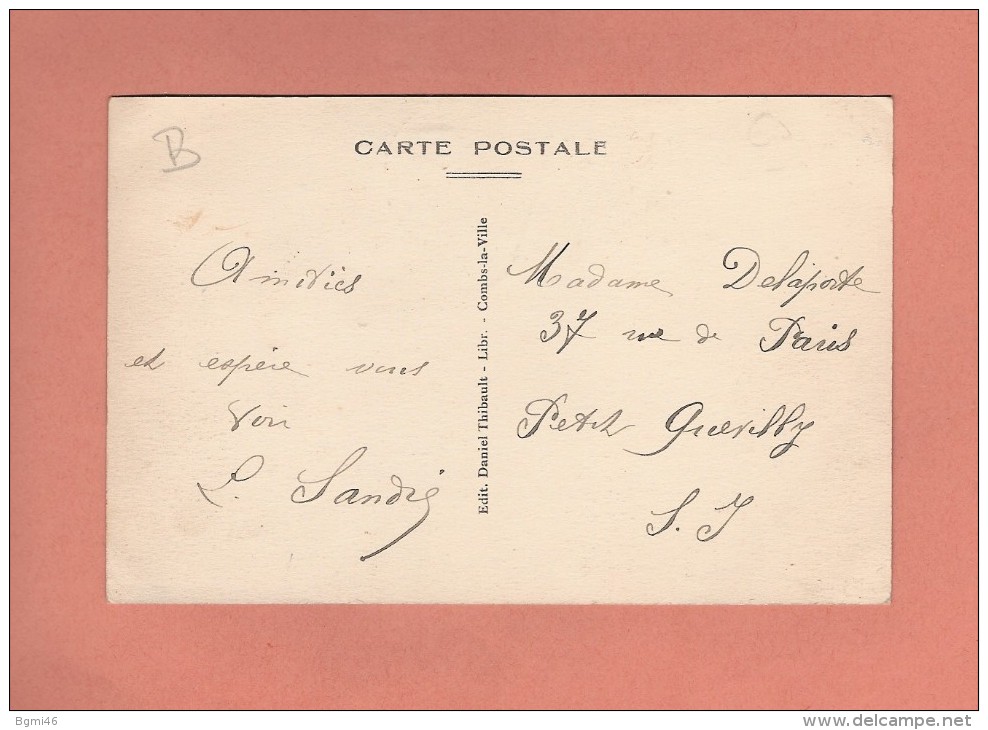 B
CARTE POSTALE
Amitiés
et espère vous
voir
L.
Edit. Daniel Thibault - Libr. - Combs-la-Ville
Madame Delaporte
37 rue de Paris
Petit Quevilly
S. I
Bgmi46
www.delcampe.net